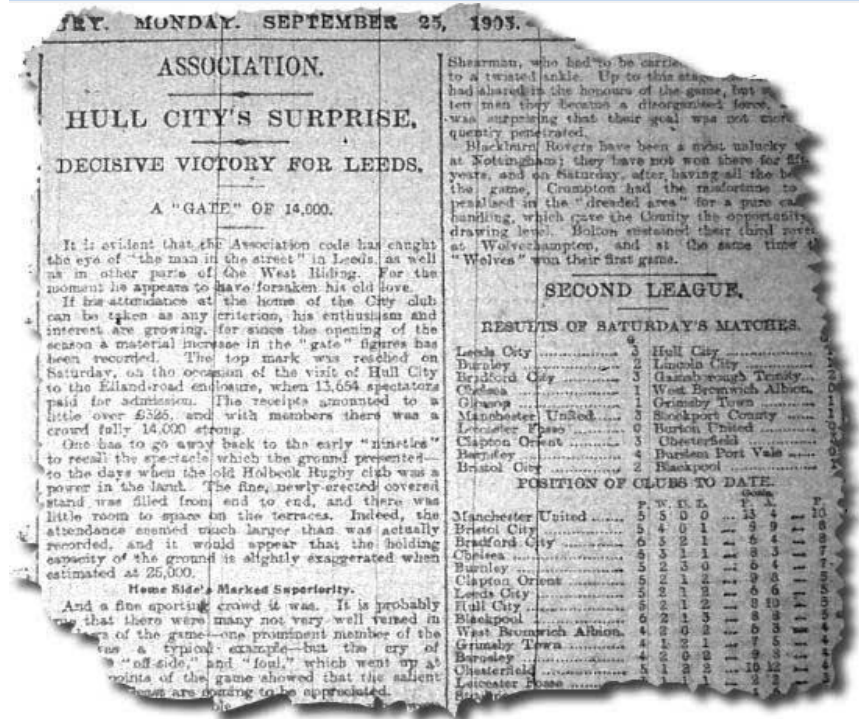 URY. MONDAY. SEPTEMBER 25, 1905.
ASSOCIATION.
HULL CITY'S SURPRISE.
DECISIVE VICTORY FOR LEEDS.
A "GATE" OF 14,000.
It is evident that the Association code has caught
the eye of "the man in the street" in Leeds, as well
as in other parts of the West Riding. For the
moment he appears to have forsaken his old love.
If his attendance at the home of the City club
can be taken as any criterion, his enthusiasm and
interest are growing, for since the opening of the
season a material increase in the "gate" figures has
been recorded. The top mark was reached on
Saturday, on the occasion of the visit of Hull City
to the Elland-road enclosure, when 13,654 spectators
paid for admission. The receipts amounted to a
little over £325, and with members there was a
crowd fully 14,000 strong.
One has to go away back to the early "nineties"
to recall the spectacle which the ground presented—
to the days when the old Holbeck Rugby club was a
power in the land. The fine, newly-erected covered
stand was filled from end to end, and there was
little room to space on the terraces. Indeed, the
attendance seemed much larger than was actually
recorded, and it would appear that the holding
capacity of the ground is slightly exaggerated when
estimated at 25,000.
Home Side's Marked Superiority.
And a fine sporting crowd it was. It is probably
that there were many not very well versed in
of the game—one prominent member of the
was a typical example—but the cry of
"off-side," and "foul," which went up at
points of the game showed that the salient
are coming to be appreciated.
Shearman, who had to be carried
to a twisted ankle. Up to this stage
had shared in the honours of the game, but
ten men they became a disorganised force,
was surprising that their goal was not more
quently penetrated.
Blackburn Rovers have been a most unlucky
at Nottingham; they have not won there for
years, and on Saturday, after having all the
the game, Crompton had the misfortune to
penalised in the "dreaded area" for a pure
handling, which gave the County the opportunity
drawing level. Bolton sustained their third
at Wolverhampton, and at the same time
"Wolves" won their first game.
SECOND LEAGUE.
RESULTS OF SATURDAY'S MATCHES.
Leeds City 3 Hull City
Burnley 2 Lincoln City
Bradford City 3 Gainsborough Trinity
Chelsea 1 West Bromwich Albion
Glossop 1 Grimsby Town
Manchester United 3 Stockport County
Leicester Fosse 0 Burton United
Clapton Orient 3 Chesterfield
Barnsley 4 Burslem Port Vale
Bristol City 2 Blackpool
POSITION OF CLUBS TO DATE.
Goals
P. W. D. L.
Manchester United 5 5 0 0 10
Bristol City 5 4 0 1 8
Bradford City 6 3 2 1 8
Chelsea 5 3 1 1 7
Burnley 5 2 3 0 7
Clapton Orient 5 2 1 2 5
Leeds City 5 2 1 2 5
Hull City 5 2 1 2 5
Blackpool 6 2 1 3 5
West Bromwich Albion 4 2 0 2
Grimsby Town 4 1 2 1
Barnsley 4 2 0 2
Chesterfield 5 1 2 2
Leicester Fosse